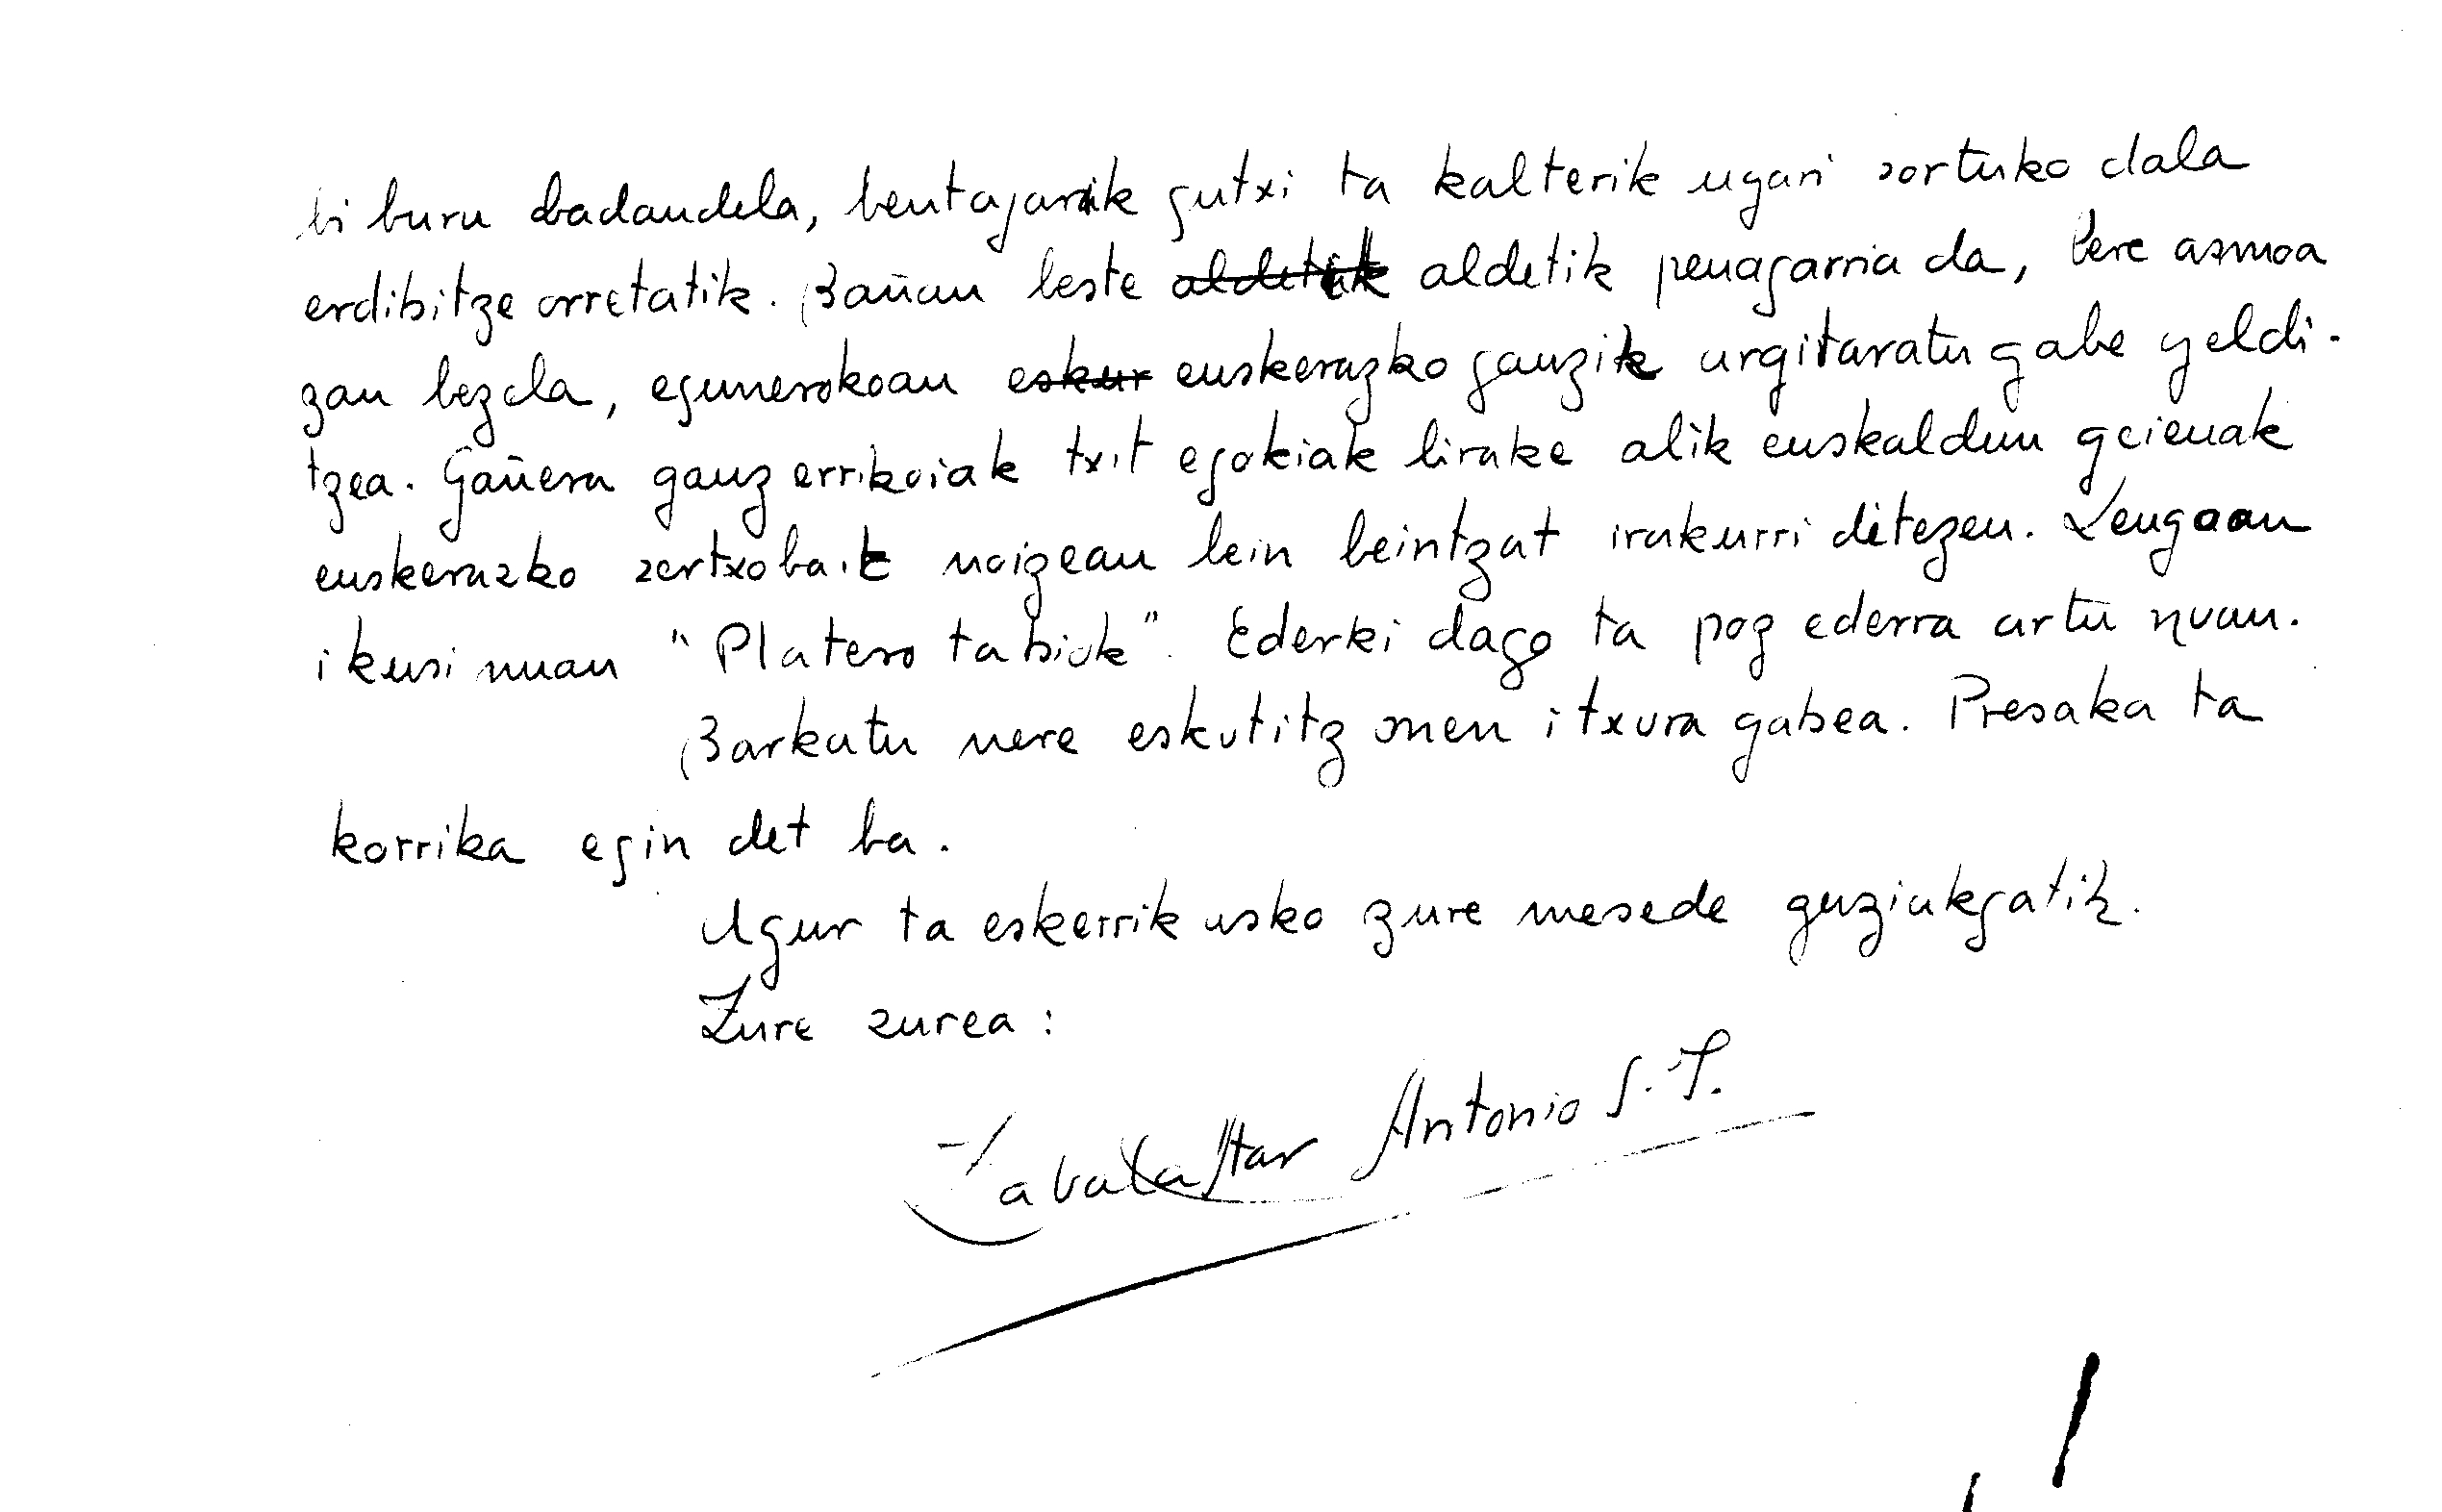 bi buru badaudela, bentajarik gutxi ta kalterik ugari sortuko dala
erdibitze orretatik. Bañan beste aldetik aldetik penagarria da, bere asmoa
zan bezela, egunerokoan eskur euskerazko gauzik urgitaratu gabe geldi-
tzea. Gañera gauz errikoiak txit egokiak lirake alik euskaldun geienak
euskerazko zertxobait noizean bein beintzat irakurri ditezen. Lengoan
ikusi nuan "Platero ta biok". Ederki dago ta poz ederra artu nuan.
Barkatu nere eskutitz onen itxura gabea. Presaka ta
korrika egin det ba.
Agur ta eskerrik asko zure mesede guziakgatik.
Zure zurea:
Zabala'tar Antonio S.J.